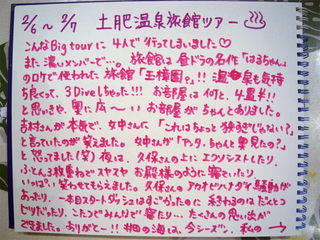 2/6 ～ 2/7 土肥温泉旅館ツアー♨
こんなBig tourに4人で行ってしまいました♡
また濃いメンバーで…。旅館は昼ドラの名作「はるちゃん」
のロケで使われた旅館「玉樟園」!! 温泉も気持
ち良くって、3 Diveしちゃった!!! お部屋は何と、4畳半!!
と思いきや、奥に広〜いお部屋がちゃんとありました。
吉村さんが本気で、女中さんに「これはちょっと狭すぎじゃない?」
と言っていたのが笑えました。女中さんが「アンタ、ちゃんと奥見たの?」
と怒ってました(笑) 夜は、久保さんの上にエクソシストしたり、
ふとん3枚重ねでスヤスヤお殿様のように寝ていたり
いっぱい笑わせてもらえました。久保さんのアカオビハナダイ騒動が
あったり、一本目スタートダッシュはすごかったのに
ビリだったり、こたつでみんなで寝たり… たくさんの思い出が
できました。ありがとー!! 井田の海は、今シーズン、私の →